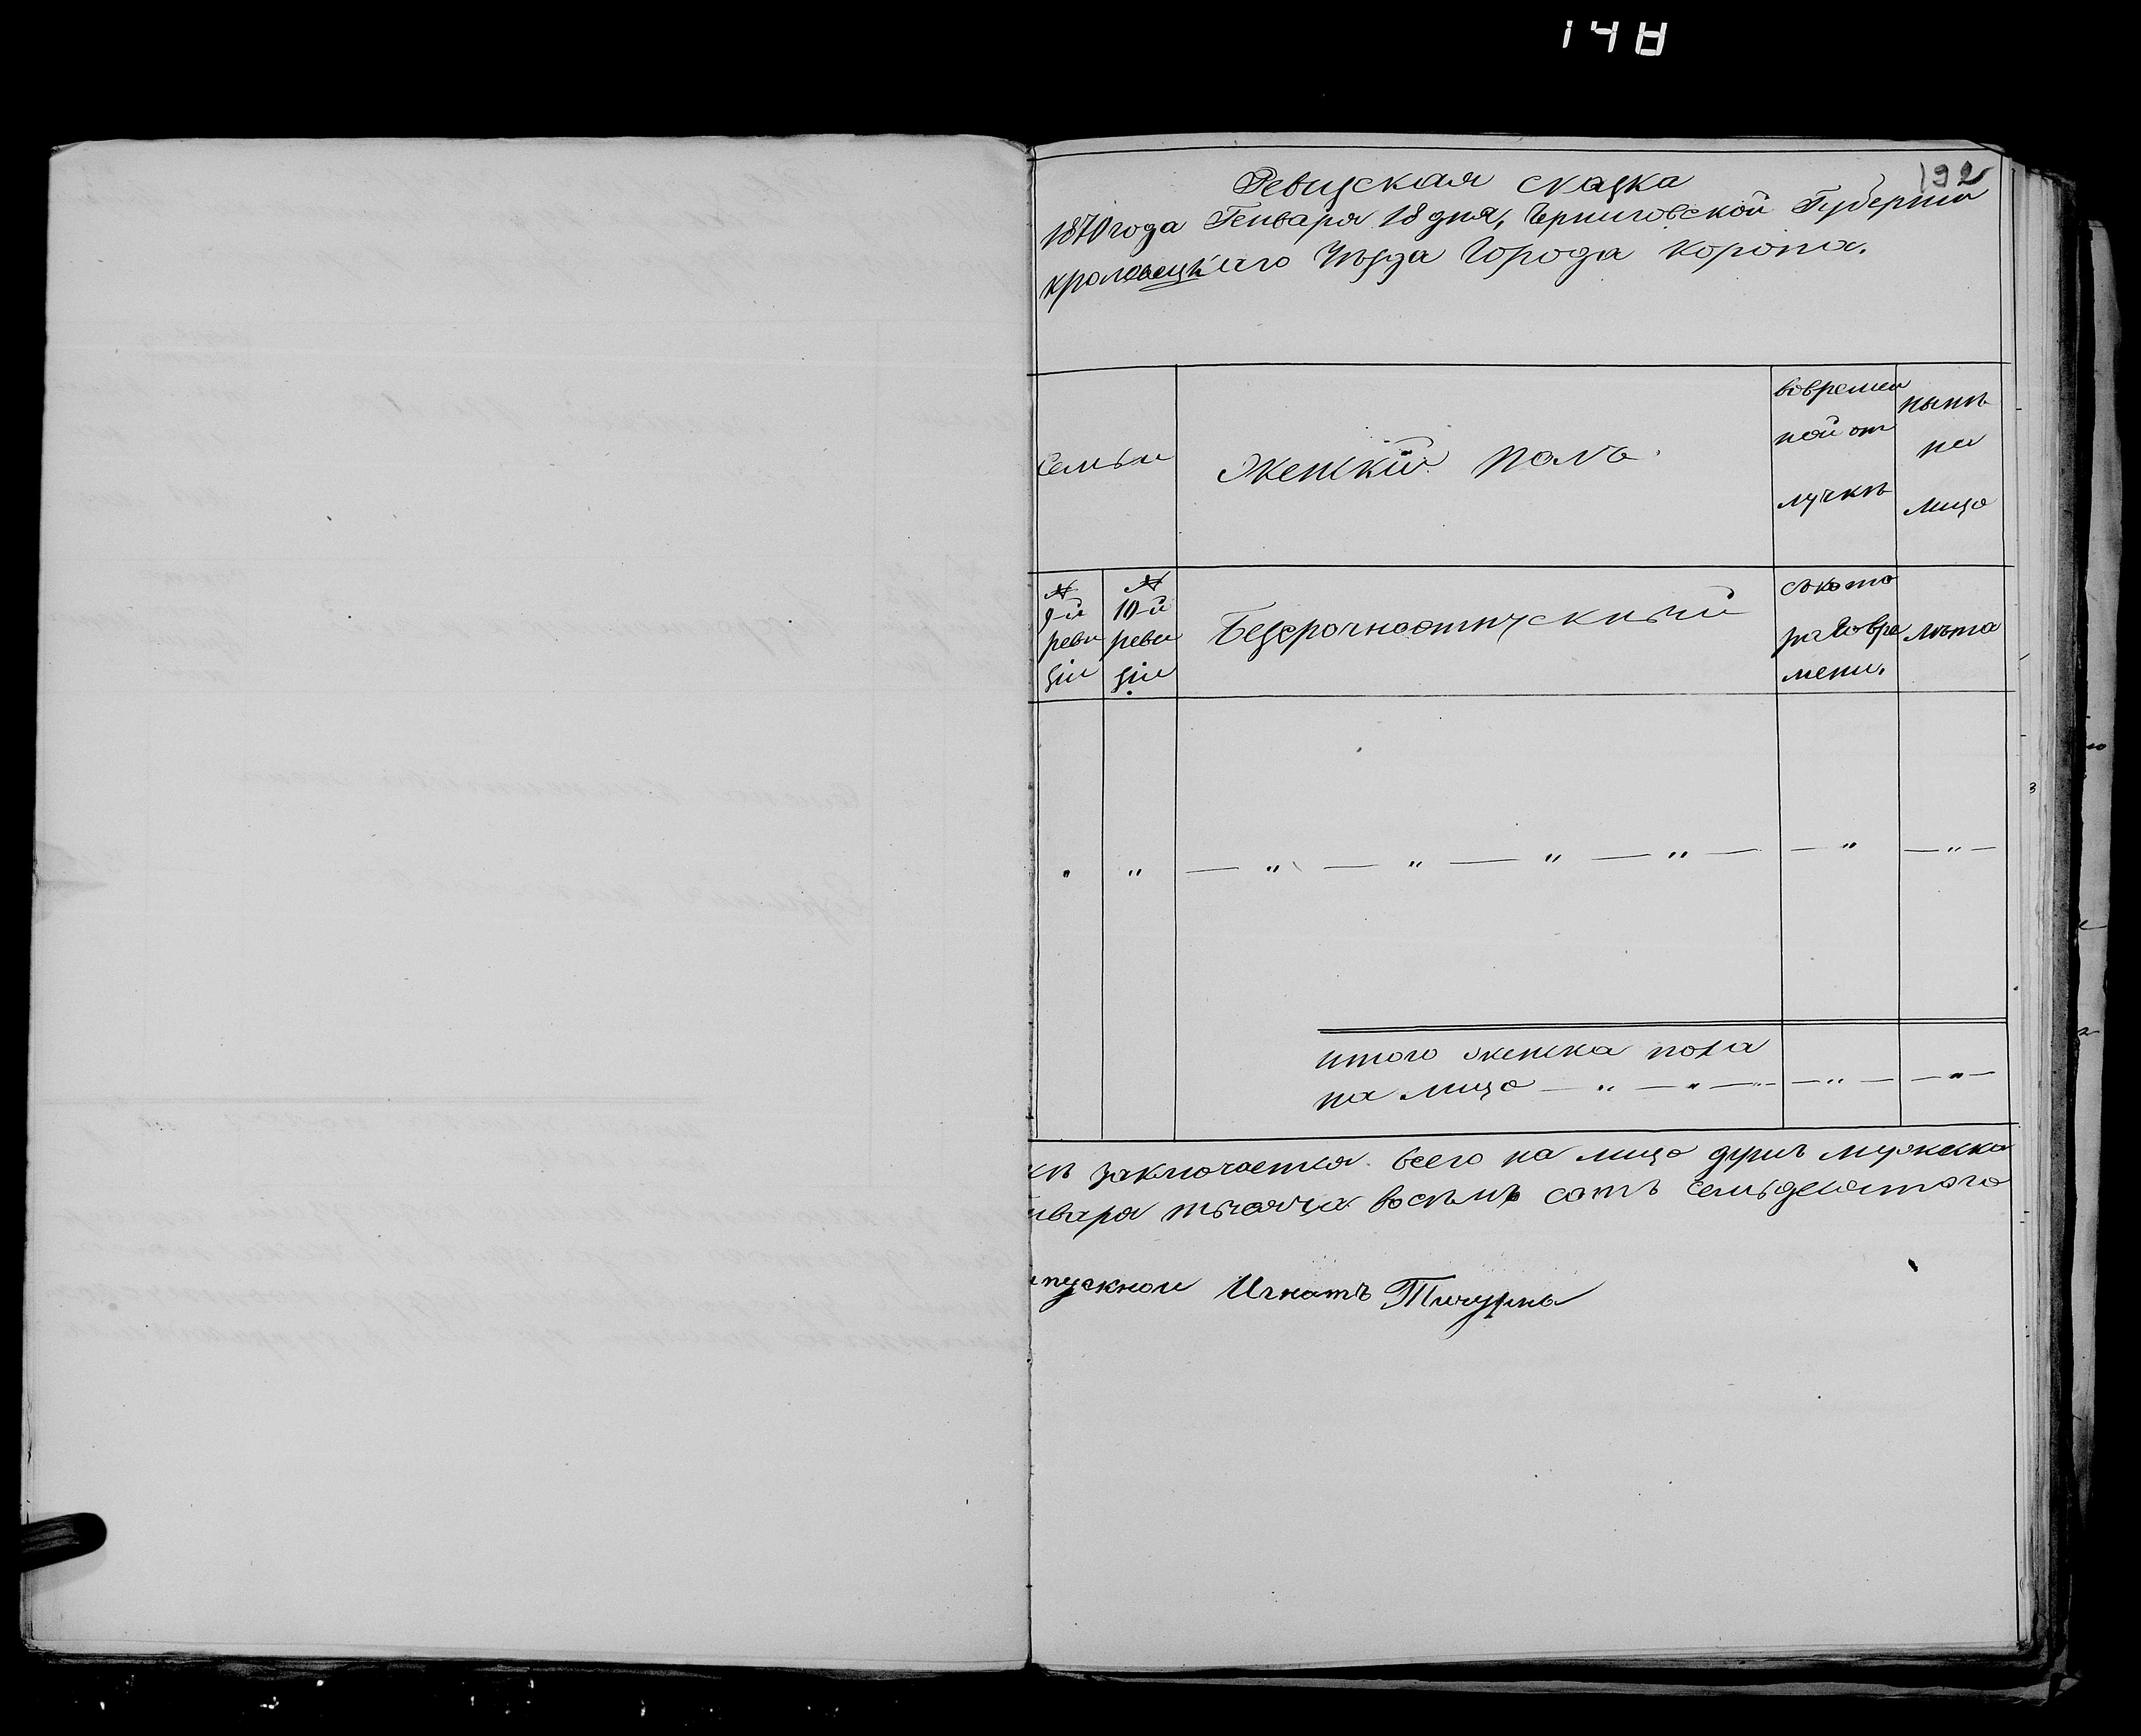 148
192
Ревизская сказка
1870 года Генваря 18 дня, Черниговской Губернии
кролевецкаго Уѣзда Города Коропа.
Семьи
Женскій полъ.
вовремен
ной от
лучкѣ
нынѣ
на
лицо
№
9-й
реви
зіи
№
10-й
реви
зіи
Безсрочноотпускный
съ кото
раго вре
мени.
лѣта
" " — " — " — " — " — — " — " —
итого женска пола
на лицо — " — " — " — " — — " —
кѣ заключается всего на лицо душъ мужеска
нваря тысяча восѣмъ сотъ семьдесятого
тпускной Игнатъ